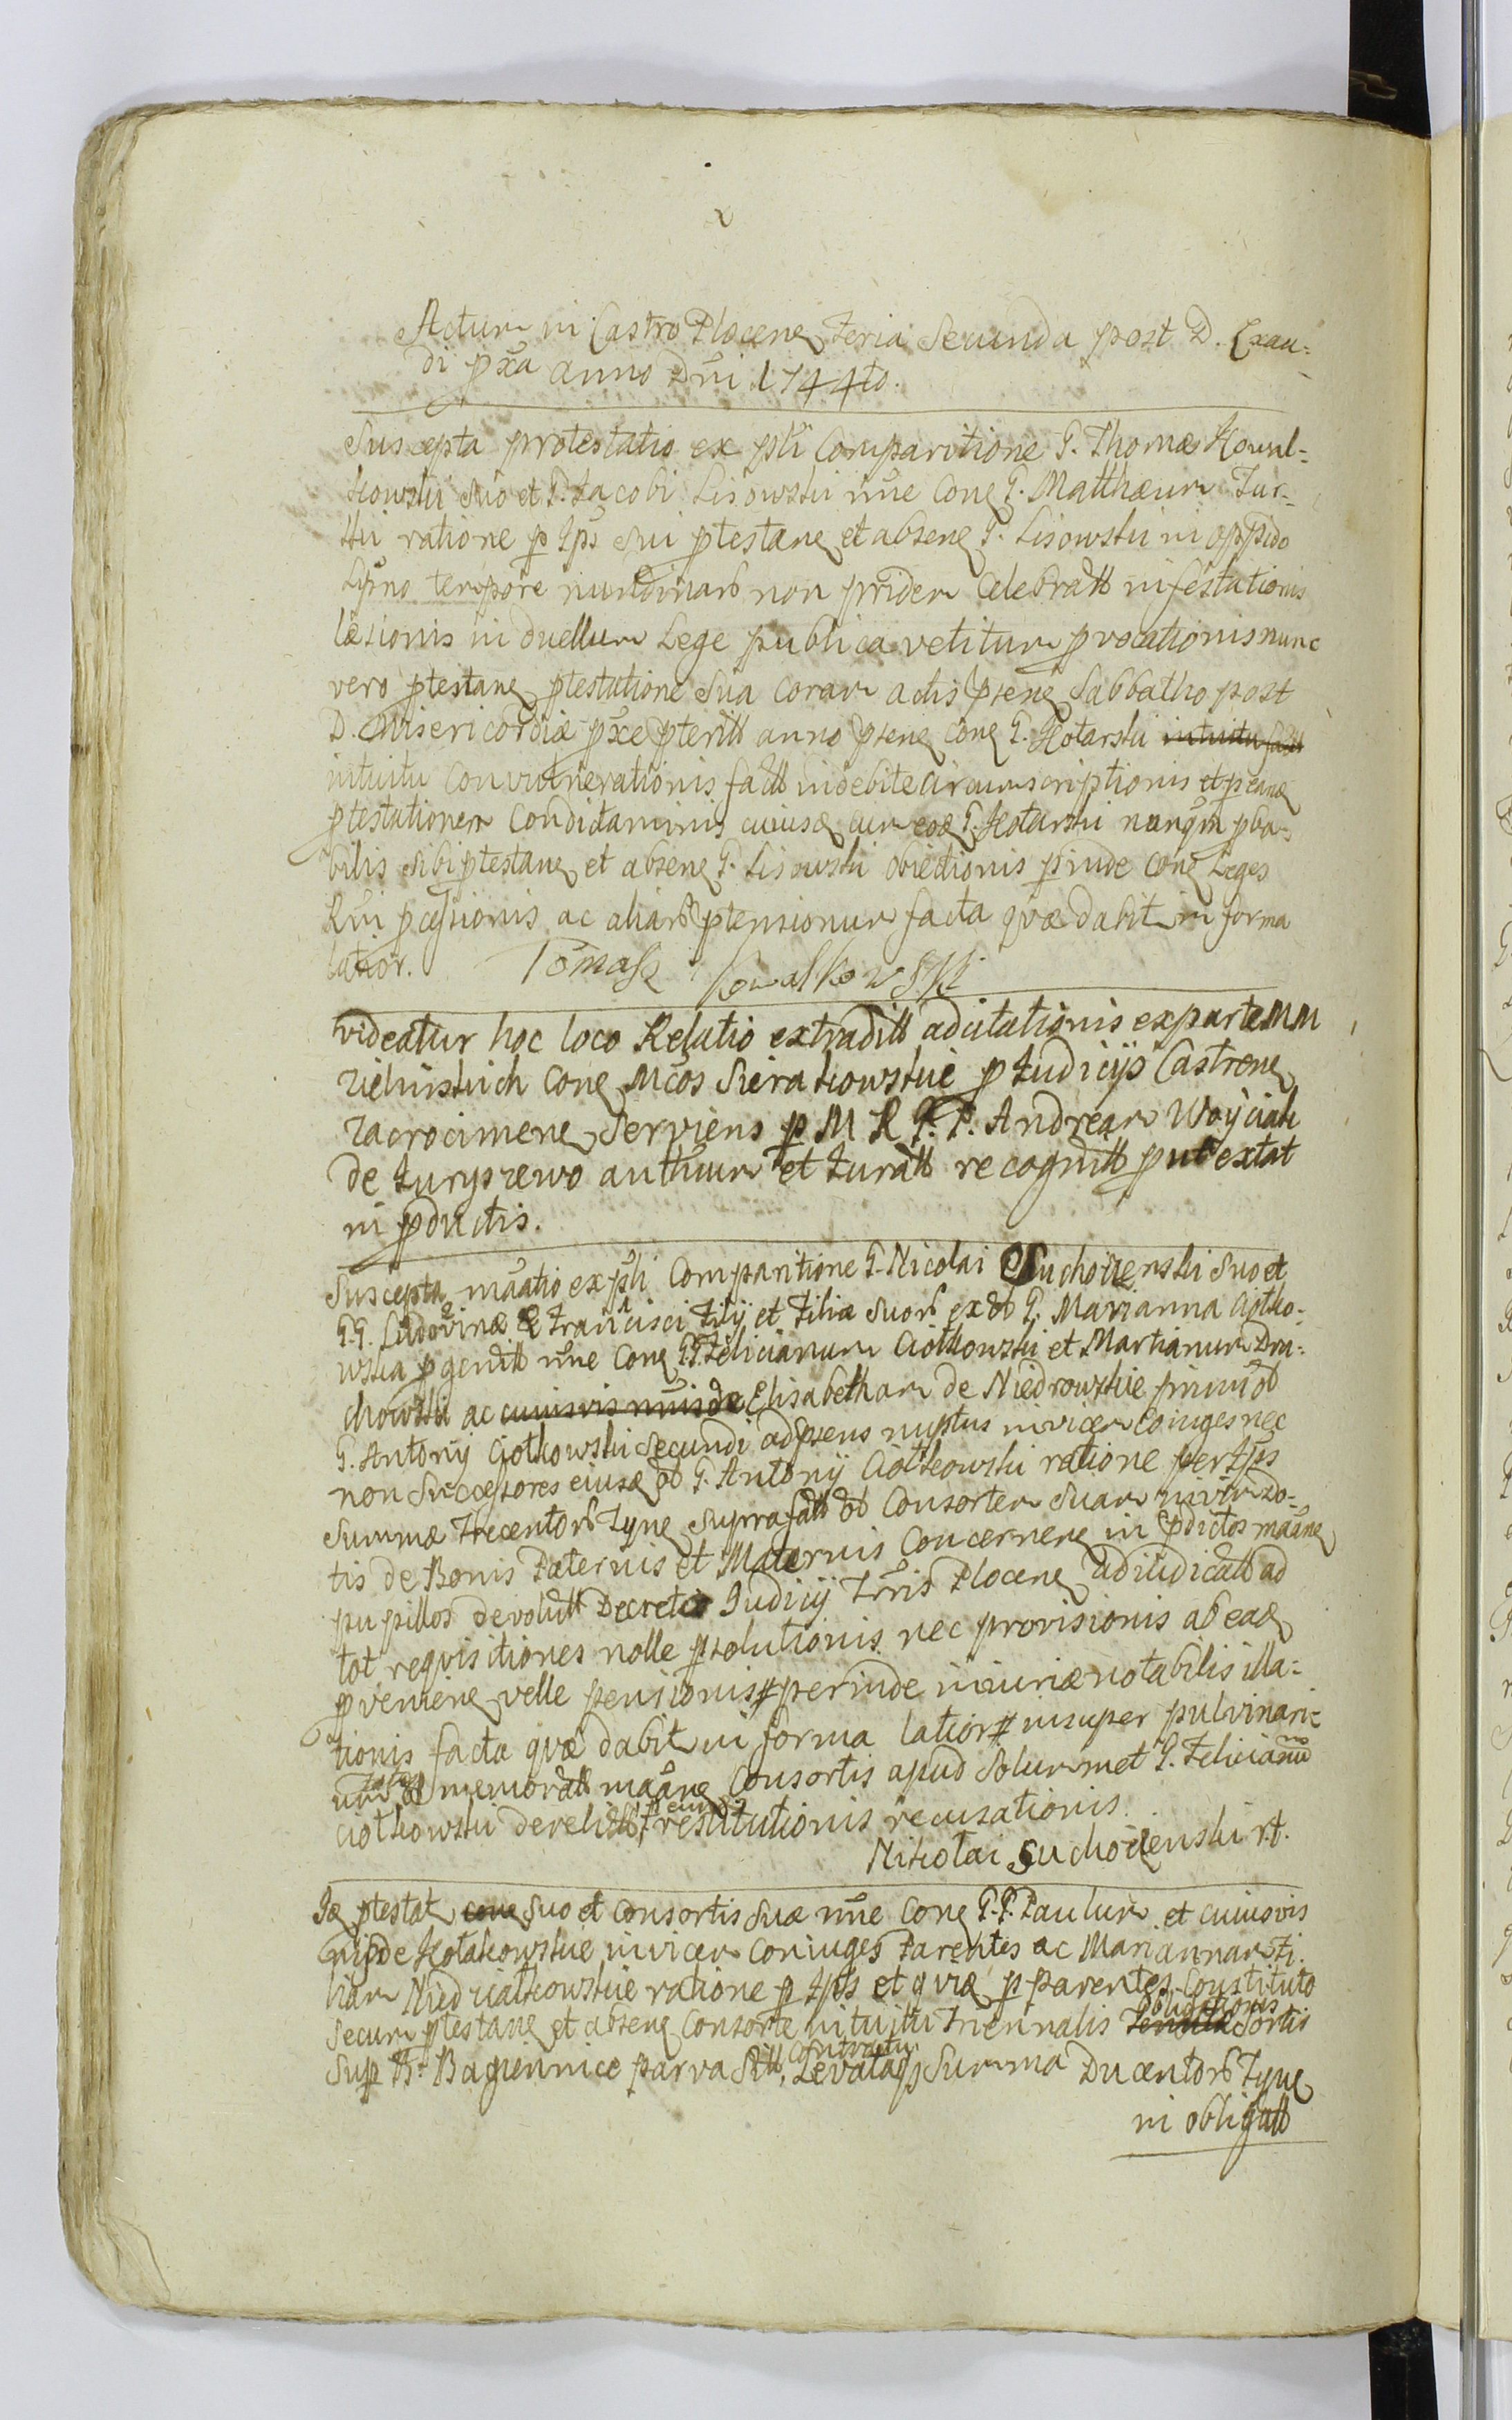 Actum in Castro Plocen Feria Secunda post D. Exau=
di pxa anno Dni 1744to.
Suscepta protestatio ex psli Comparitione G. Thomæ Kowal=
kowski suo et G. Jacobi Lisowski nne Con G. Matthæum Tur=
ski ratione p Ips sui ptestan et absen G. Lisowski in oppido
Lypno tempore nundinarb non pridem Celebratt infestationis
læsionis in duellum Lege publica vetitum pvocationis nunc
vero ptestan ptestatione sua coram actis psen Sabbatho post
D. Misericordiæ pxe pteritt anno psen Con G. Kotarski intuitu fatt
intuitu Convulnerationis fatt indebite circumscriptionis et
ptestationem Condictaminis cum eod G. Kotarski nunqm pba=
bilis sibi ptestan et absen G. Lisowski obiectionis pinde Con Leges
Rni pcessionis ac aliarb ptensionum facta qvæ dabit in forma
latior. Tomasz Kowalkowski
videatur hoc loco Relatio extraditt adcitationis ex parte MM
Zielinskich Con Mcos Sierakowskie p Judicijs Castren
Zacrocimen Serviens p M R P. P. Andream Woyciak
de Juryszewo authum et Juratt recognitt put extat
in pductis.
Suscepta maatio ex psli Comparitione G. Nicolai Suchodzenski suo et
G.G. Ludovinæ & Francisci Filij et Filiæ suorb ex ob G. Marianna Ciotko=
wska pgenitt nne Con G.G. Felicianum Ciotkowski et Martianum Dra=
chowski ac cuiusvis nnisde Elisabetham de Niedrowskie primi ob
G. Antonij Ciotkowski Secundi ad psens nuptus invicem Coniuges nec
non Successores eiusd ob G. Antonij Ciotkowski ratione per Ips
Summæ Trecentorb Tyn suprafatt ob Consortem suam in vim Do=
tis de Bonis Paternis et Maternis Concernen in pdictos maan
pupillos devolutt Decreto Judicij Trris Plocen adiudicatt ad
tot reqvisitiones nolle psolutionis nec provisionis ab ead
pvenien velle pensionis # perinde iniuriæ notabilis illa=
tionis facta qvæ dabit in forma latior # insuper pulvinari=
um memoratt maan Consortis apud Solummet G. Felicianu
Ciotkowski derelictt restitutionis recusationis.
Nikolai Suchodzenski rt.
Id ptestat con suo et Consortis suæ nne Con G.G. Paulum et cuiusvis
nnisde Kotakowskie invicem Coniuges Parentes ac Mariannam Fi=
liam Niedzialkowskie ratione p Ips et qvia p parentes Constituto
secum ptestan et absen Consorte intuitu Triennalis obligationis Sortis
Sup Bt Bagiennice parva Sitt, Contractu Levataqs Summa Ducentorb Tyn
in obligatt